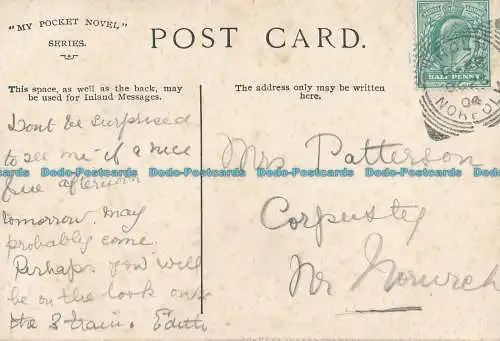 "MY POCKET NOVEL"
SERIES.
POST CARD.
This space, as well as the back, may
be used for Inland Messages.
The address only may be written
here.
HALF PENNY
NORFOLK
04
Dont be surprised
to see me if a nice
fine afternoon
tomorrow. May
probably come.
Perhaps you will
be on the look out
the 3 train. Edith
Mrs Patterson
Corpusty
Nr Norwich
Dodo-Postcards Dodo-Postcards Dodo-Postcards Dodo-Postcards